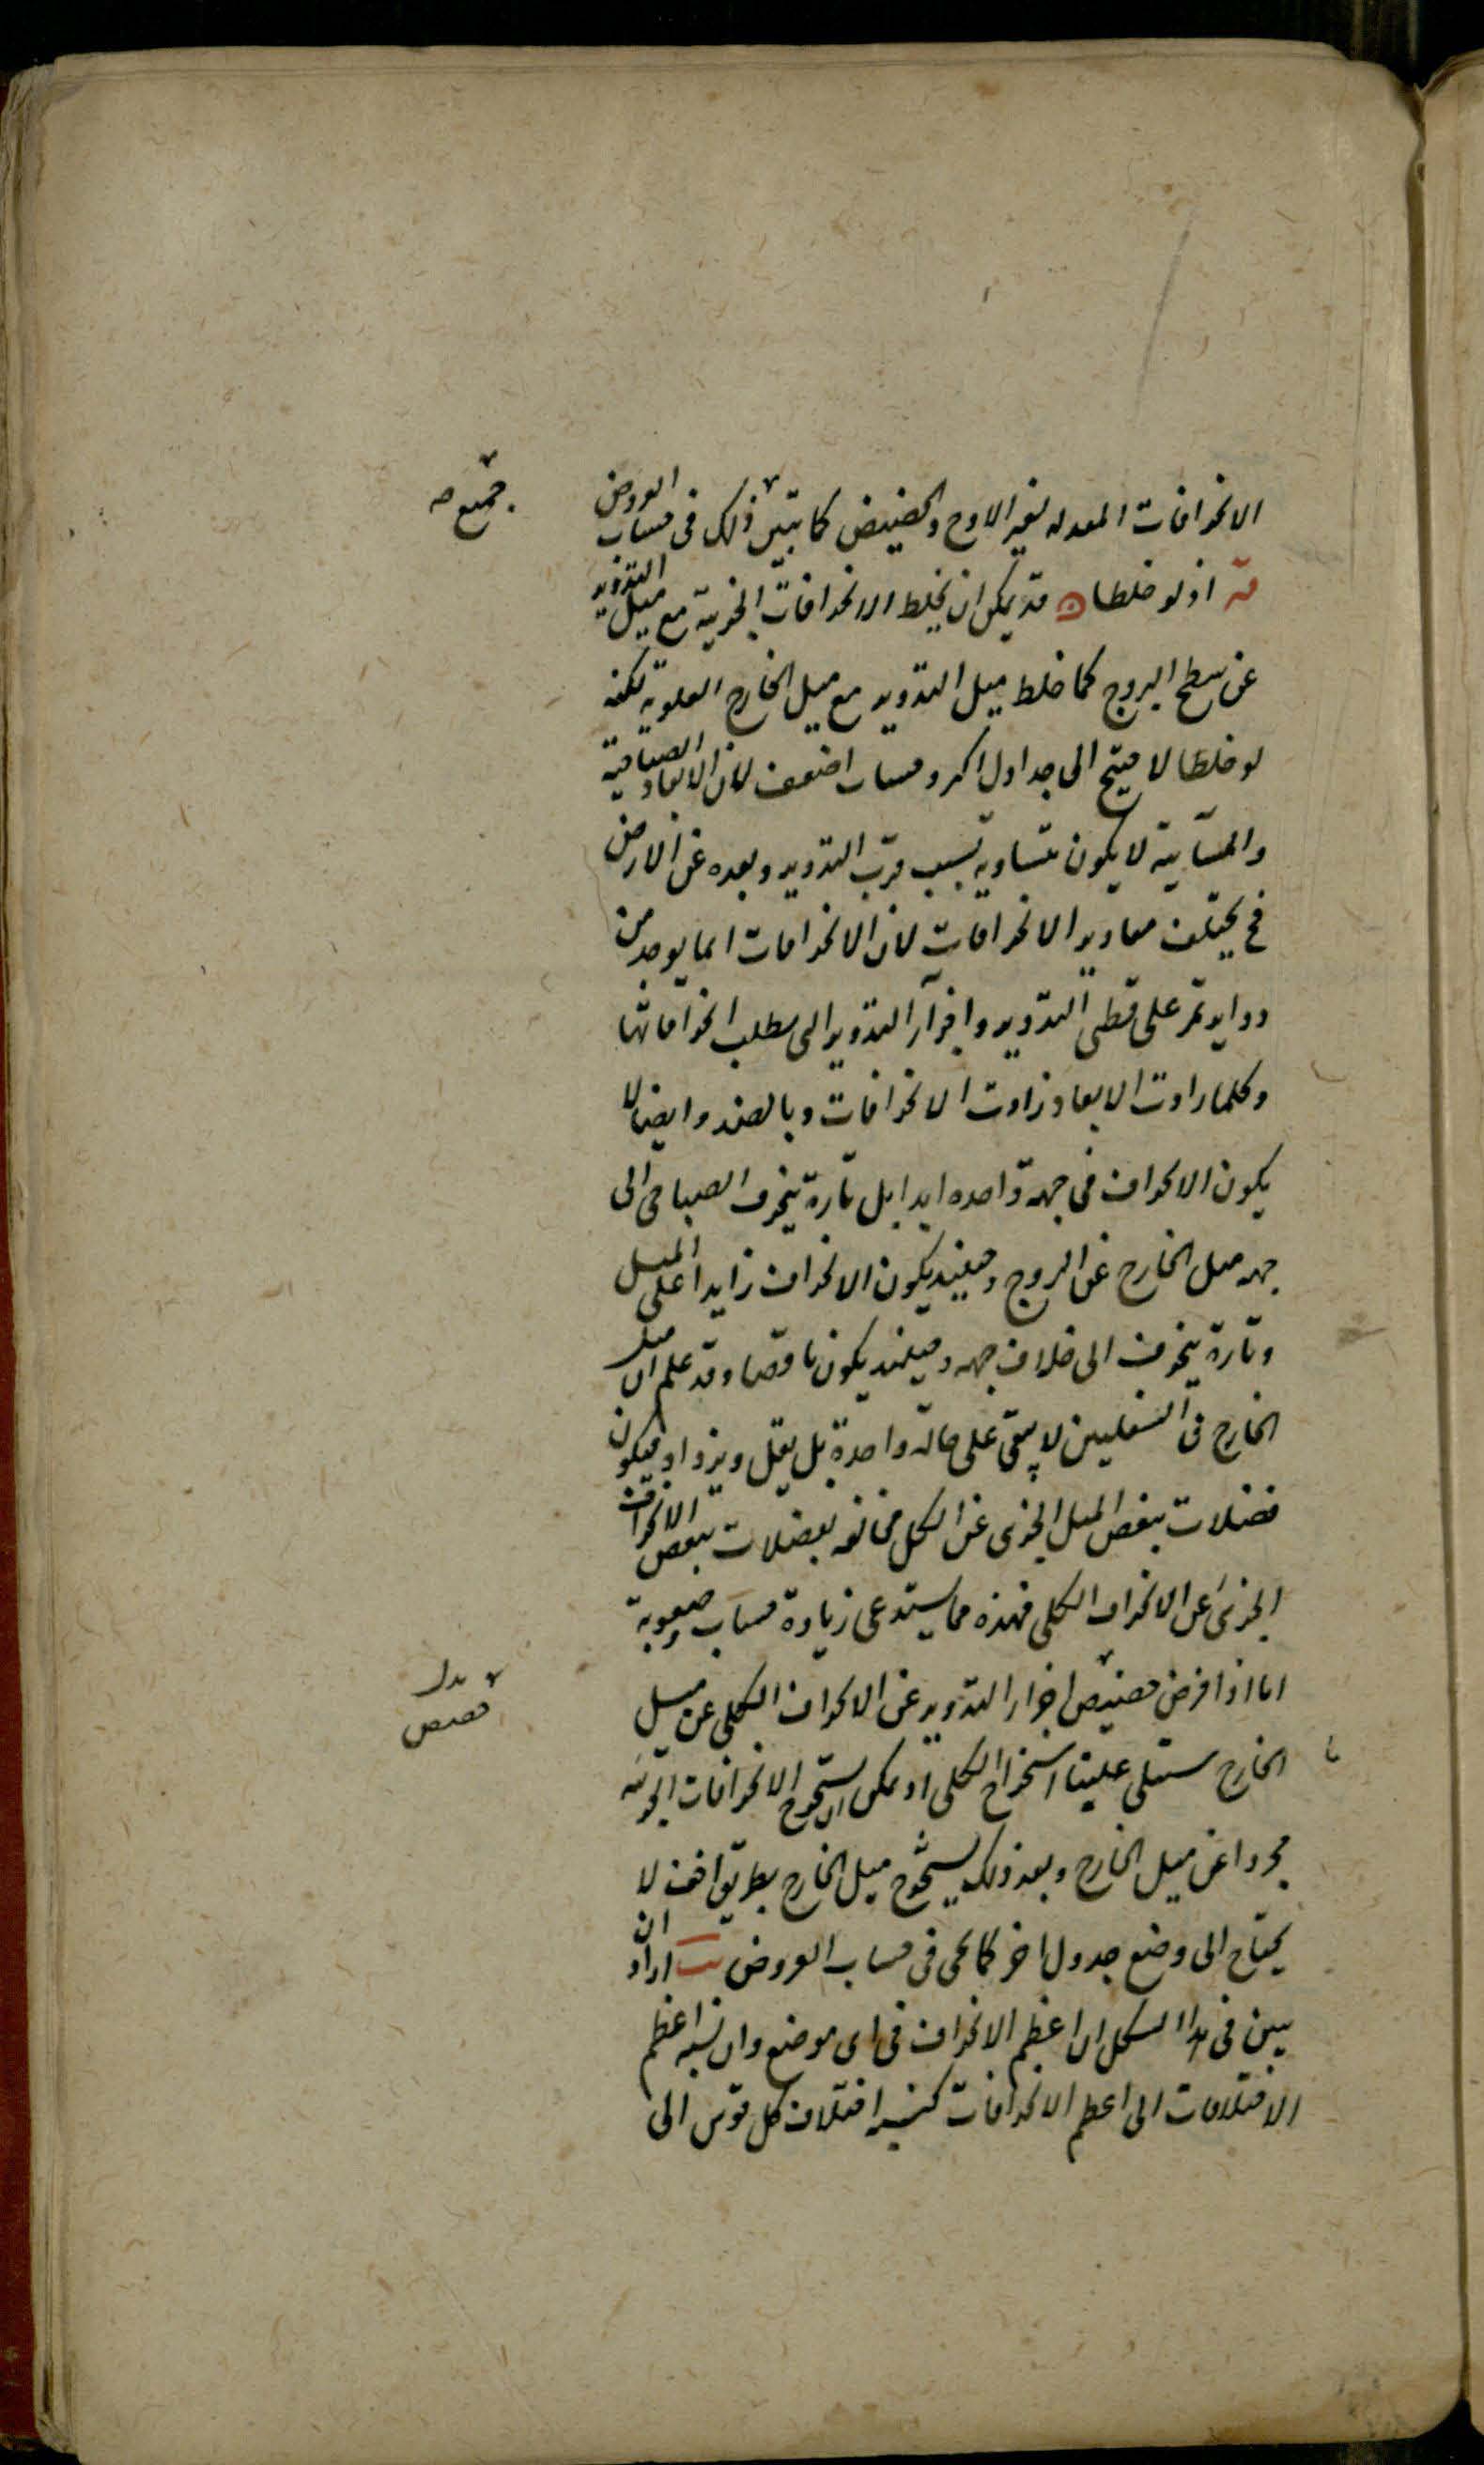 الانحرافات المعدله لغير الاوج والحضيض كما تبين ذلك فى حساب العروض
جميع صح
قه اذ لو خلطا ن قد يمكن ان يخلط الانحرافات الجزيية مع ميل التدوير
عن سطح البروج كما خلط ميل التدوير مع ميل الخارج العلويه لكنه
لو خلطا لاحتيج الى جداول اكثر وحساب اضعف لان الابعاد الصباحية
والمسآيية لا يكون متساويه بسبب قرب التدوير وبعده عن الارض
فح يختلف مقادير الانحرافات لان الانحرافات انما يوجد من
دواير تمر على قطبى التدوير واجزآء التدوير التى يطلب انحرافاتها
وكلما زادت الابعاد زادت الانحرافات وبالضد وايضا لا
يكون الانحراف فى جهة واحده ابدا بل تارة ينحرف الصباحى الى
جهه ميل الخارج عن البروج وحينيذ يكون الانحراف زايدا على الميل
وتارة ينحرف الى خلاف جهه وحينئذ يكون ناقصا وقد علم ان ميل
الخارج فى السفليين لا يبقى على حالة واحدة بل يقل ويزداد فيكون
فضلات بعض الميل الجزى عن الكل مخالفه لفضلات بعض الانحراف
الجزئى عن الانحراف الكلى فهذه مما يستدعى زيادة حساب وصعوبة
اما اذا فرض حضيض اجزاء التدوير عن الانحراف الكلى عن ميل
بدل
حضيض
الخارج سهل علينا استخراج الكلى اذ يمكن ان يستخرج الانحرافات الجزئيه
مجردا عن ميل الخارج وبعد ذلك يستخرج ميل الخارج بطريق اخف لا
يحتاج الى وضع جدول اخر كما يجى فى حساب العروض اراد ان
يبين فى هذا الشكل ان اعظم الانحراف فى اى موضع وان نسبه اعظم
الاختلافات الى اعظم الانحرافات كنسبه اختلاف كل قوس الى